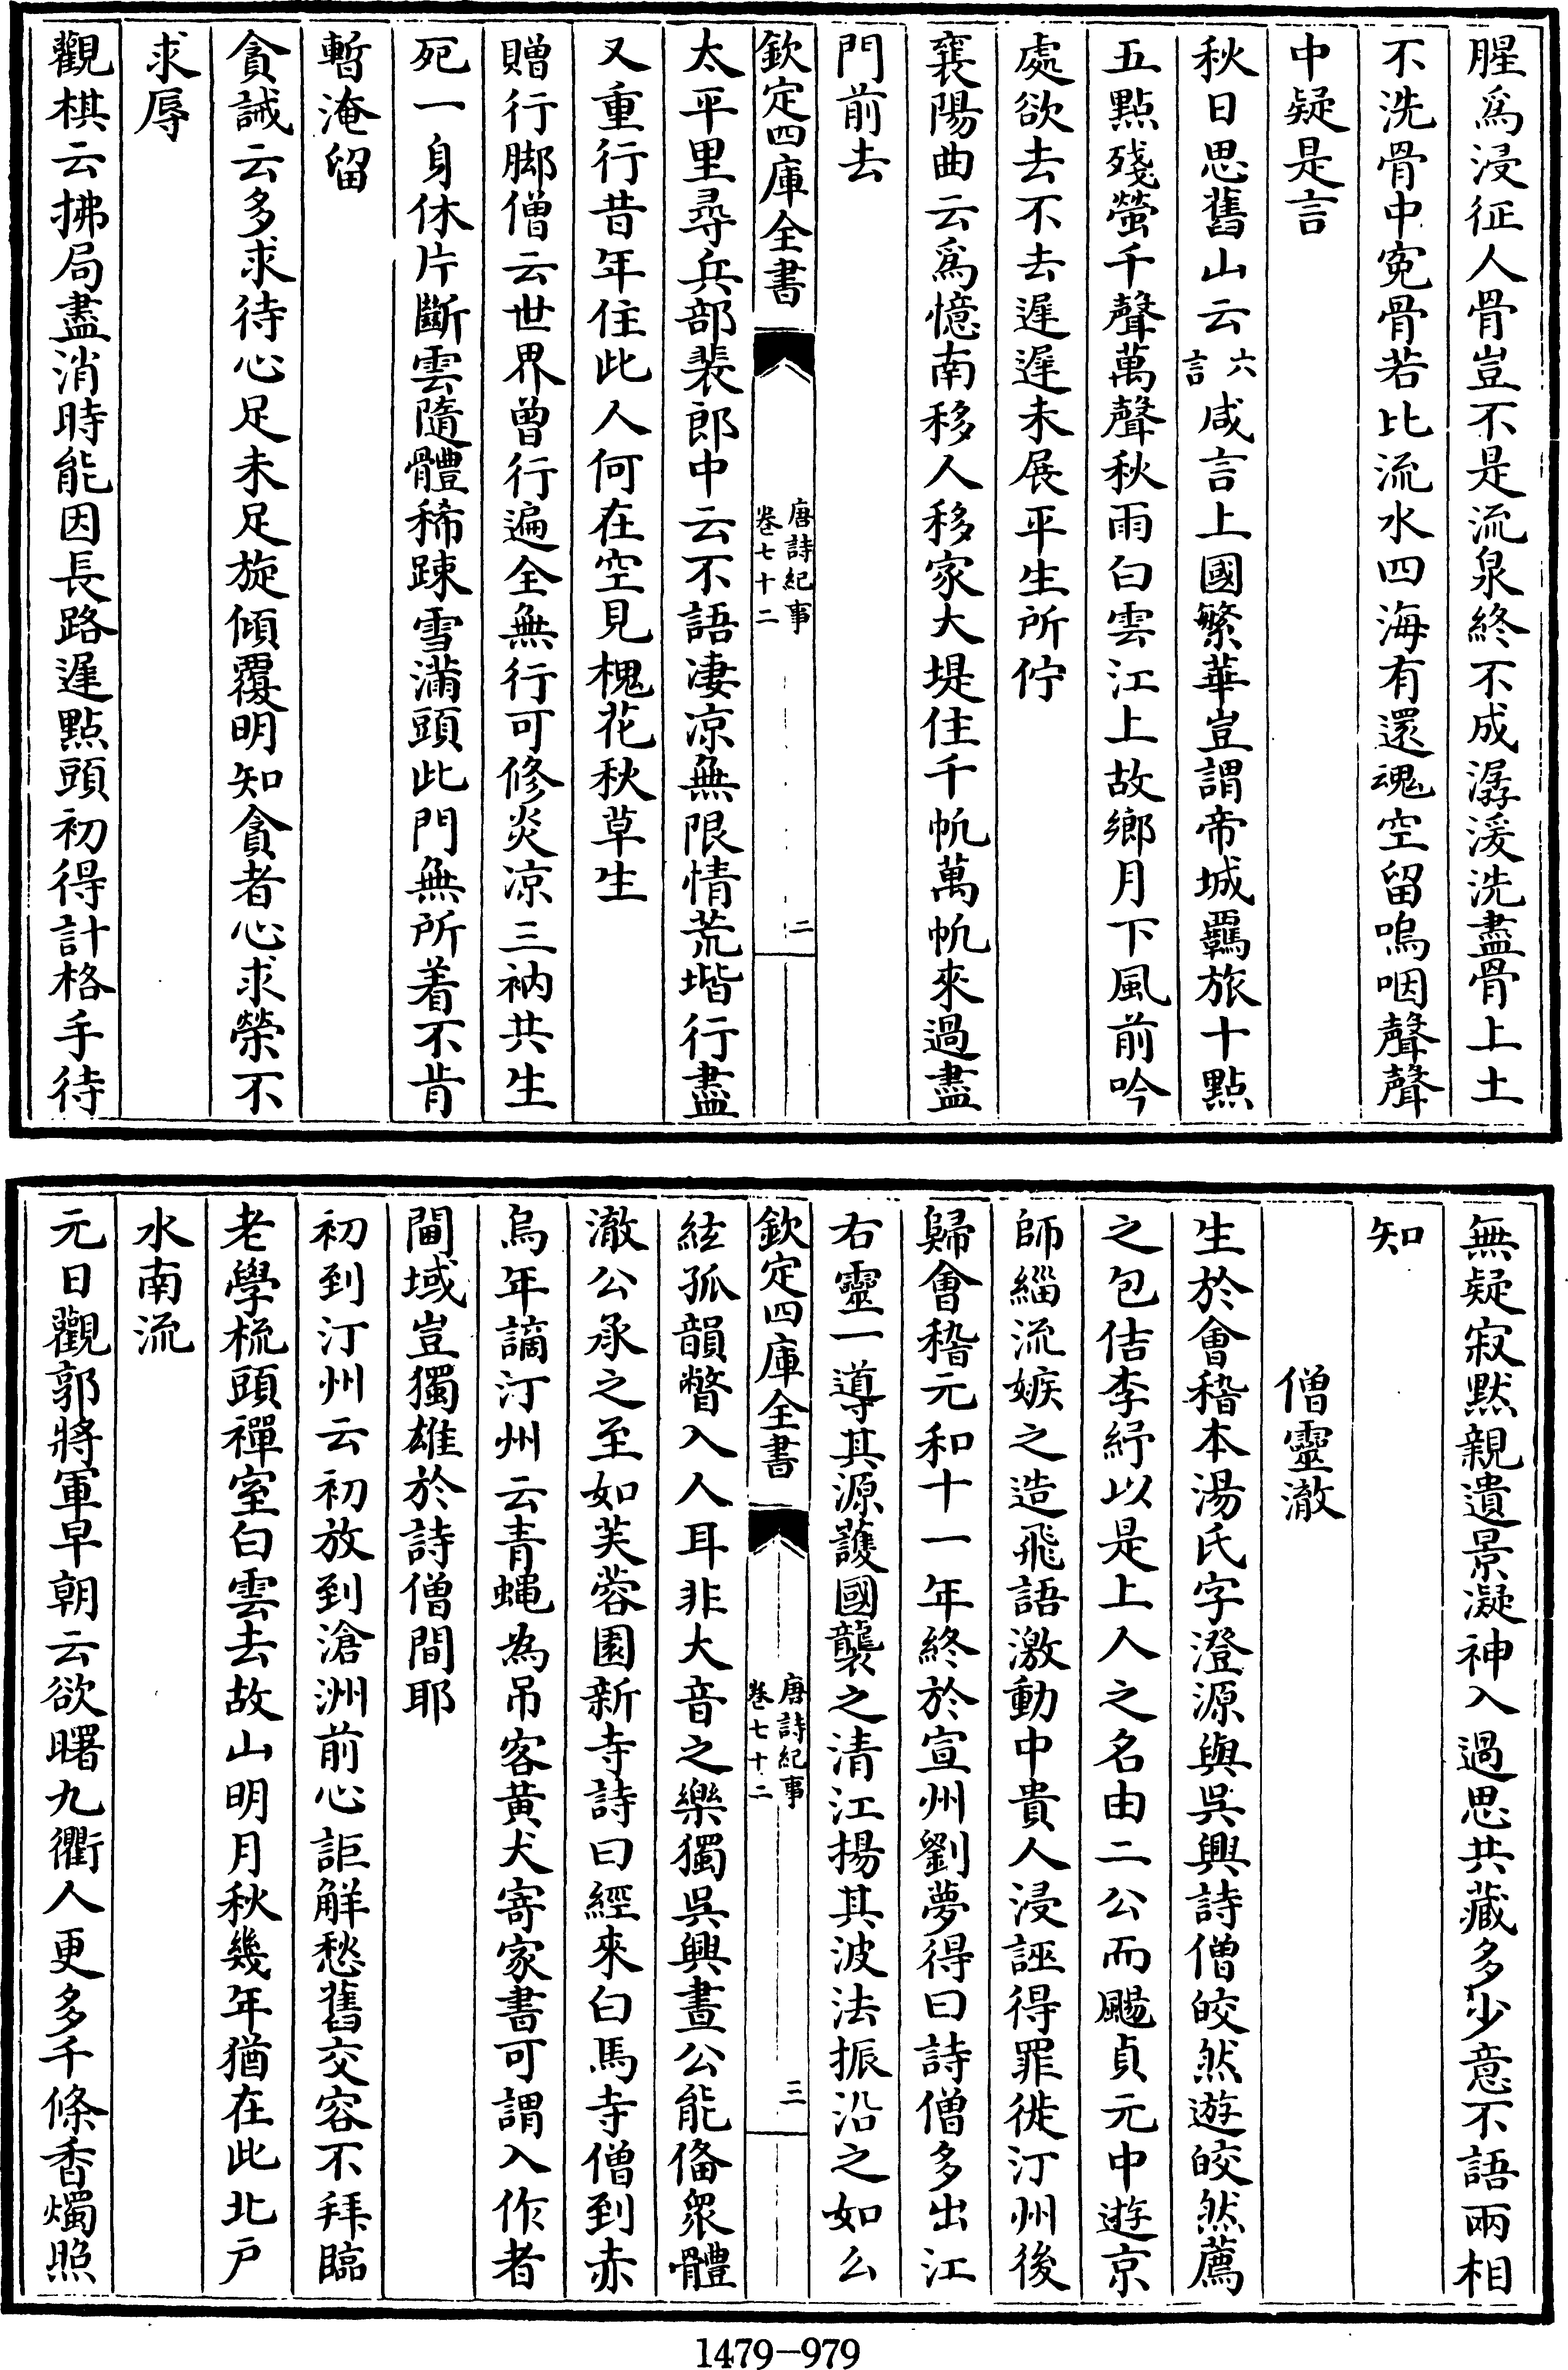 腥爲浸征人骨豈不是流泉終不成潺湲洗盡骨上土
不洗骨中寃骨若比流水四海有還魂空留嗚咽聲聲
中疑是言
秋日思舊山云六言咸言上國繁華豈謂帝城羈旅十點
五點殘螢千聲萬聲秋雨白雲江上故鄉月下風前吟
處欲去不去遲遲未展平生所佇
襄陽曲云爲憶南移人移家大堤住千帆萬帆來過盡
門前去
欽定四庫全書
唐詩紀事
卷七十二
二
太平里尋兵部裴郎中云不語凄凉無限情荒堦行盡
又重行昔年住此人何在空見槐花秋草生
贈行脚僧云世界曾行遍全無行可修炎凉三衲共生
死一身休片斷雲隨體稀踈雪滿頭此門無所着不肯
暫淹留
貪誡云多求待心足未足旋傾覆明知貪者心求榮不
求辱
觀棋云拂局盡消時能因長路遲點頭初得計格手待
無疑寂默親遺景凝神入過思共藏多少意不語兩相
知
僧靈澈
生於會稽本湯氏字澄源與吳興詩僧皎然遊皎然薦
之包佶李紓以是上人之名由二公而颺貞元中遊京
師緇流嫉之造飛語激動中貴人浸誣得罪徙汀州後
歸會稽元和十一年終於宣州劉夢得曰詩僧多出江
右靈一導其源護國襲之清江揚其波法振沿之如么
欽定四庫全書
唐詩紀事
卷七十二
三
絃孤韻瞥入人耳非大音之樂獨吳興晝公能備衆體
澈公承之至如芙蓉園新寺詩曰經來白馬寺僧到赤
烏年謫汀州云青蠅為吊客黄犬寄家書可謂入作者
閫域豈獨雄於詩僧間耶
初到汀州云初放到滄洲前心詎解愁舊交容不拜臨
老學梳頭禪室白雲去故山明月秋幾年猶在此北戶
水南流
元日觀郭將軍早朝云欲曙九衢人更多千條香燭照
1479-979